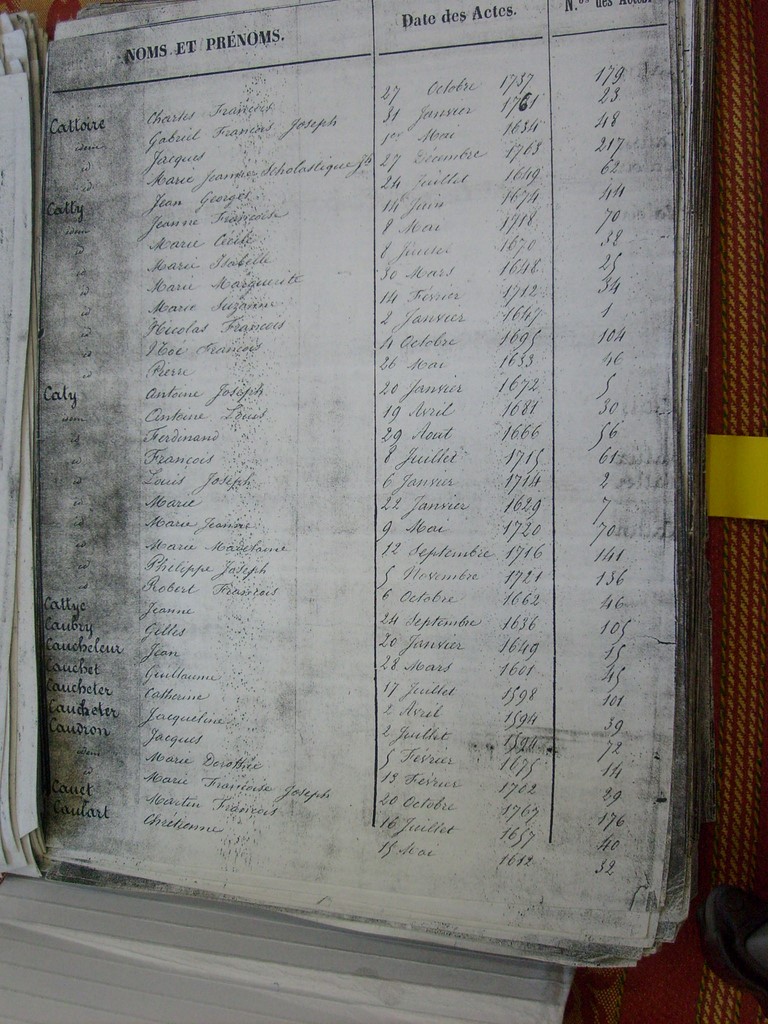 NOMS ET PRÉNOMS. Date des Actes. N.os des Actes.
Cattoire Charles François 27 Octobre 1737 179
idem Gabriel François Joseph 31 Janvier 1761 23
id Jacques 1er Mai 1634 48
id Marie Jeanne Scholastique Jh 27 Decembre 1763 217
Catty Jean Georges 24 Juillet 1649 62
idem Jeanne Françoise 14 Juin 1674 44
id Marie Cécile 8 Mai 1718 70
id Marie Isabelle 8 Juillet 1670 38
id Marie Marguerite 30 Mars 1648 25
id Marie Suzanne 14 Février 1712 34
id Nicolas François 2 Janvier 1647 1
id Noé François 4 Octobre 1695 104
id Pierre 26 Mai 1633 46
Caty Antoine Joseph 20 Janvier 1672 5
idem Antoine Louis 19 Avril 1681 30
id Ferdinand 29 Aout 1666 56
id François 8 Juillet 1715 61
id Louis Joseph 6 Janvier 1714 2
id Marie 22 Janvier 1629 7
id Marie Jeanne 9 Mai 1720 70
id Marie Madelaine 12 Septembre 1716 141
id Philippe Joseph 5 Novembre 1721 136
id Robert François 6 Octobre 1662 46
Cattye Jeanne 24 Septembre 1636 105
Caubry Gilles 20 Janvier 1649 15
Caucheleur Jean 28 Mars 1601 45
Cauchet Guillaume 17 Juillet 1598 101
Caucheter Catherine 2 Avril 1594 39
Caucheter Jacqueline 2 Juillet 1594 72
Caudron Jacques 5 Février 1675 14
idem Marie Dorothée 13 Février 1702 29
id Marie Françoise Joseph 20 Octobre 1767 176
Cauet Martin François 16 Juillet 1657 40
Caulart Chrétienne 15 Mai 1612 32